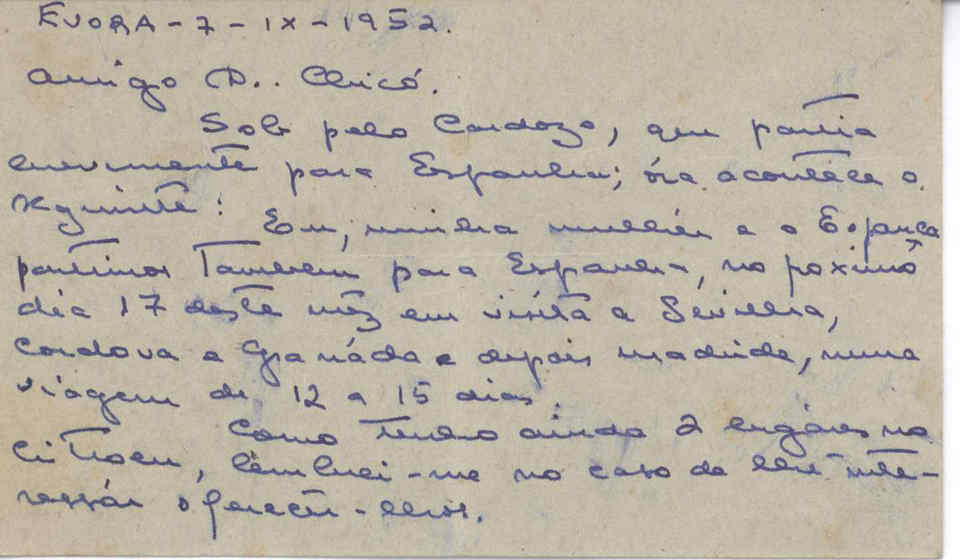 EVORA - 7 - IX - 1952.
Amigo D.. Chicó.
Sob pelo Cardozo, que partia
brevemente para Espanha; óra acontece o
seguinte: Eu, minha mulhér e o Espanca
partimos Tambem para Espanha, no poximo
dia 17 deste mêz em visita a Sevilha,
Cordova e Granáda e depois Madride, numa
viagem de 12 a 15 dias.
Como tenho ainda 2 lugáres no
Citroen, lembrei-me no caso de lhe inte-
ressár oferecêr-lhos.